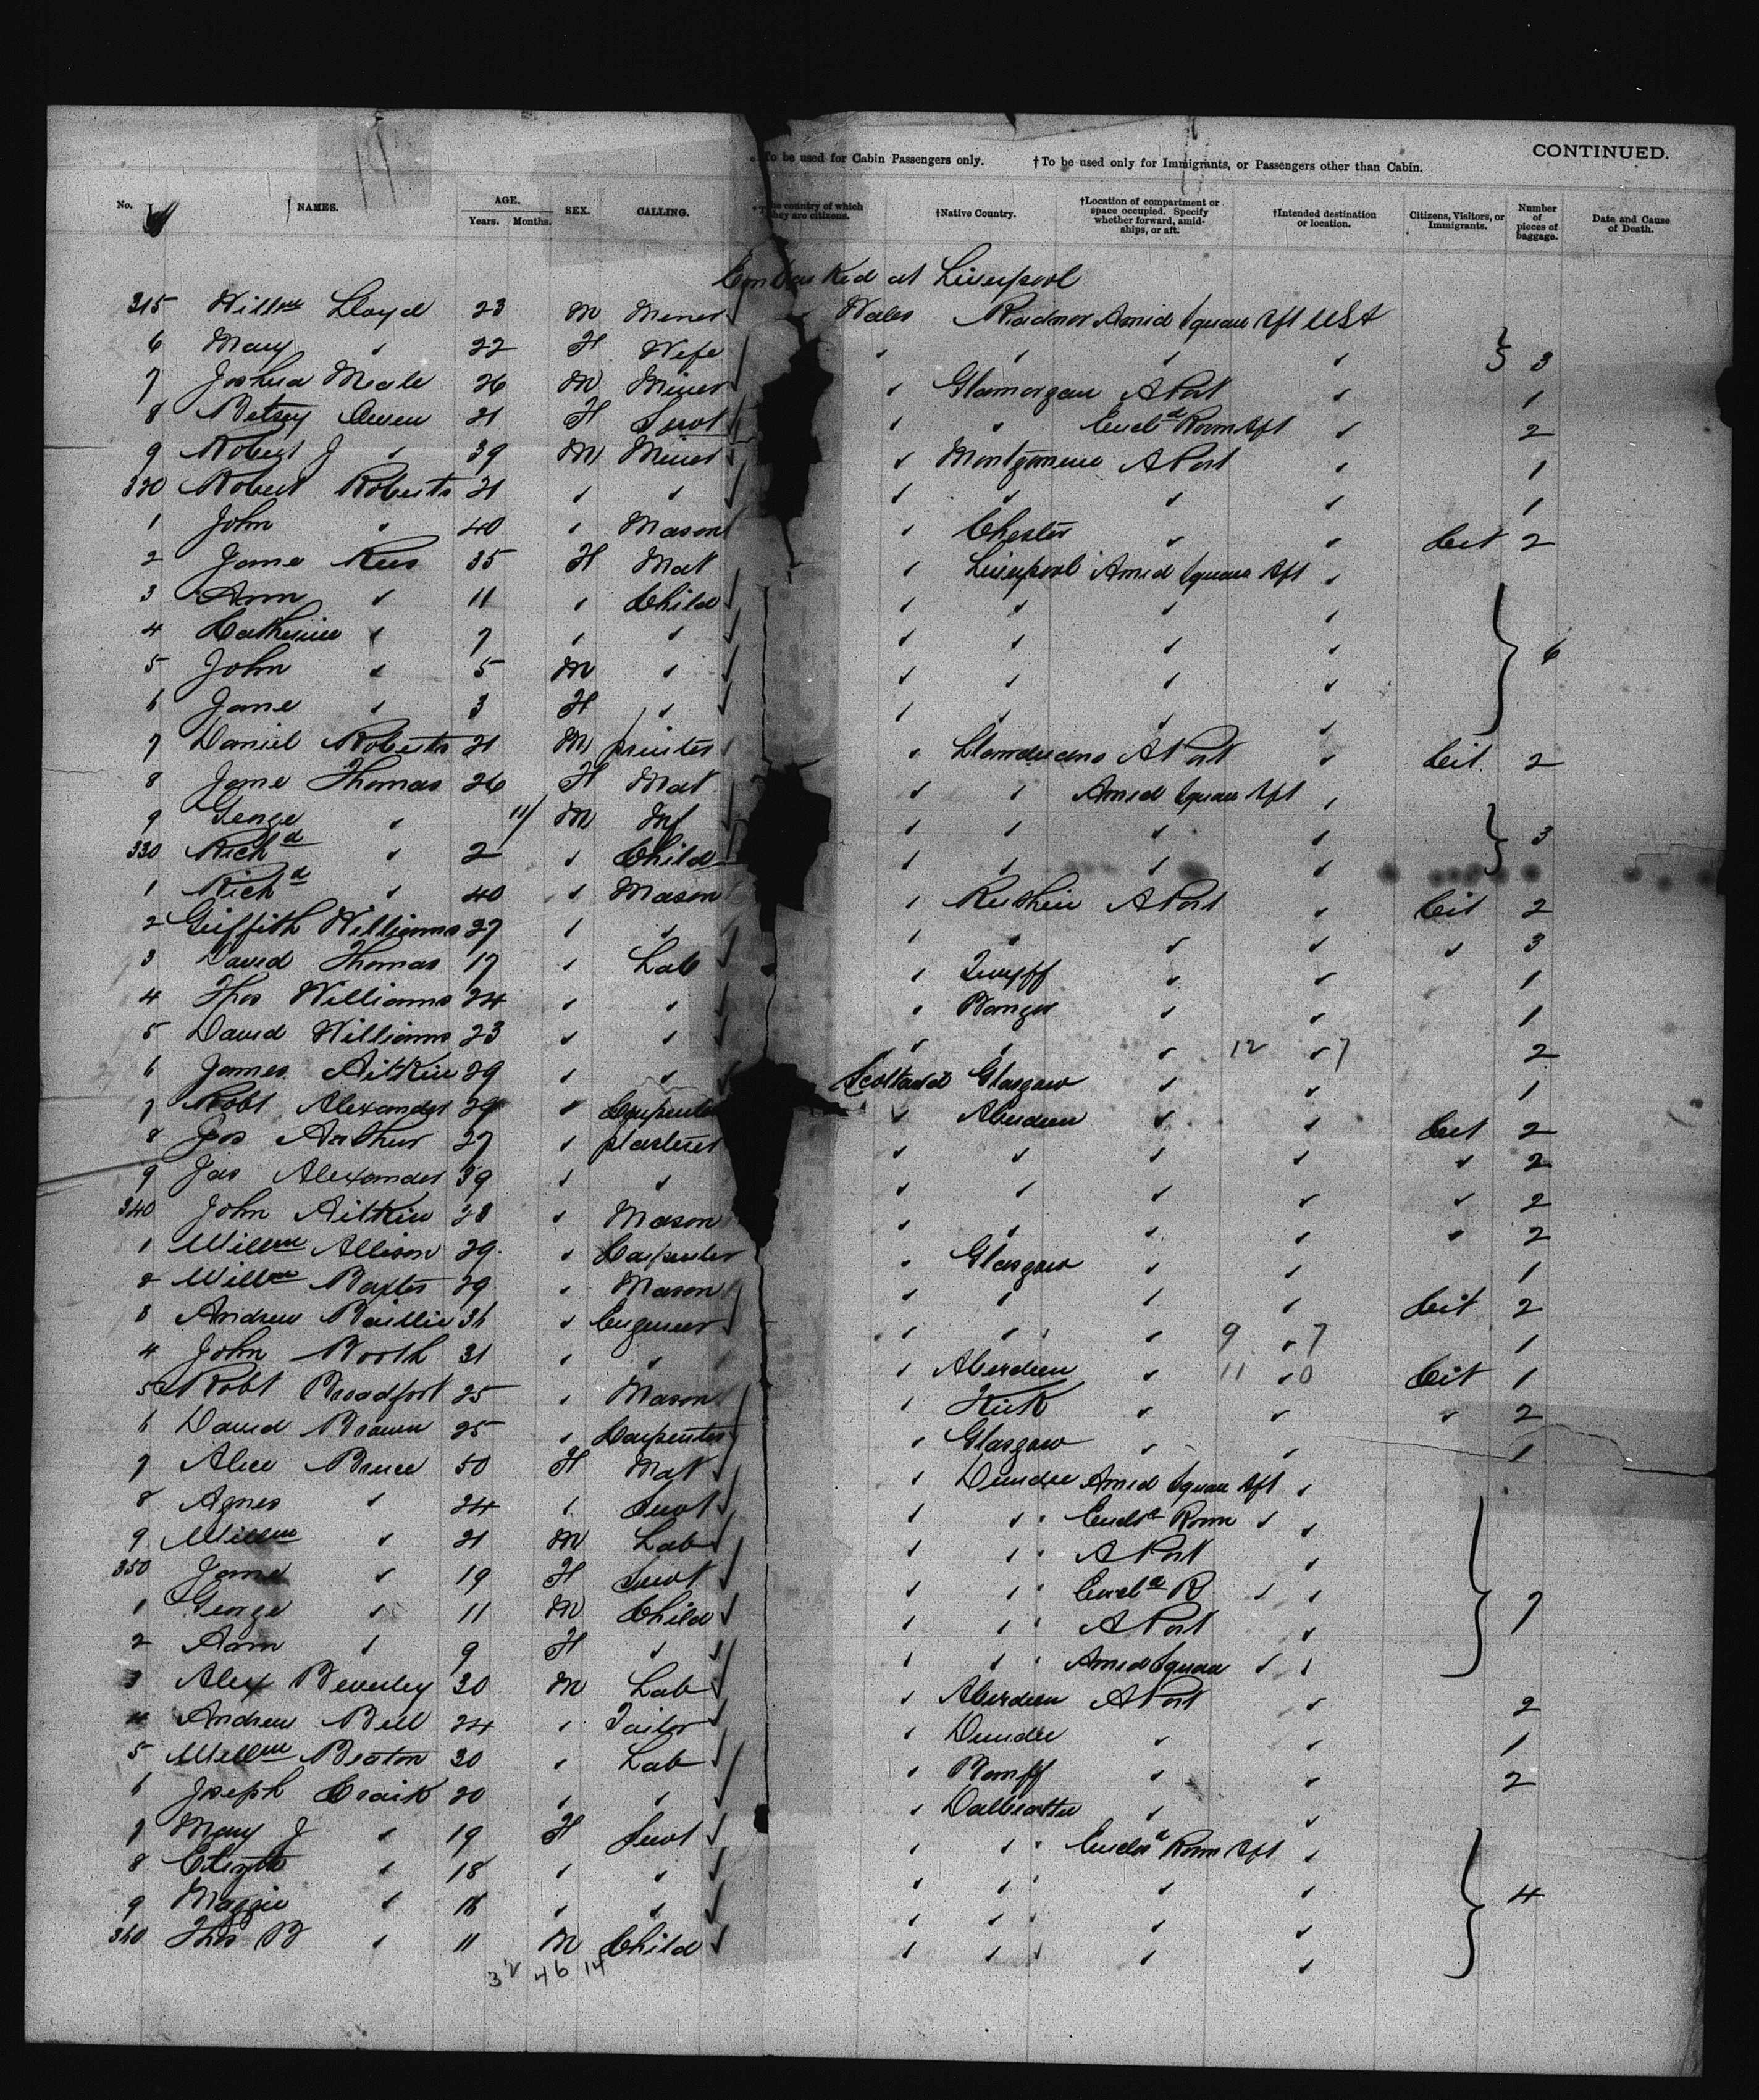 CONTINUED.
To be used for Cabin Passengers only. †To be used only for Immigrants, or Passengers other than Cabin.
No. NAMES. AGE. Years. Months. SEX. CALLING. country of which they are citizens. †Native Country. †Location of compartment or space occupied. Specify whether forward, amidships, or aft. †Intended destination or location. Citizens, Visitors, or Immigrants. Number of pieces of baggage. Date and Cause of Death.
Embarked at Liverpool
315 Willm Lloyd 23 M Miner Wales Radnor Amid Square Aft USA
6 Mary " 22 F Wife " " " " } 3
7 Joshua Meale 26 M Miner " Glamorgan A Port " 1
8 Betsey Owen 21 F Servt " " Encld Room Aft " 2
9 Robert J " 39 M Miner " A Port " 1
320 Robert Roberts 21 " " " " " " 1
1 John " 40 " Mason " Chester " " Cit 2
2 Jane Rees 35 F Mat " Liverpool Amid Square Aft "
3 Ann " 11 " Child " " " "
4 Catherine " 7 " " " " " " } 6
5 John " 5 M " " " " "
6 Jane " 3 F " " " " "
7 Daniel Roberts 21 M printer " A Port " Cit 2
8 Jane Thomas 26 F Mat " " Amid Square Aft "
9 George " 11/ M Inf " " " " } 3
330 Richd " 2 " Child " " " "
1 Richd " 40 " Mason " Ruthin A Port " Cit 2
2 Griffith Williams 27 " " " " " " " 3
3 David Thomas 17 " Lab " " " 1
4 Thos Williams 24 " " " Bangor " " 1
5 David Williams 23 " " " " " 12 " 7 2
6 James Aitkin 29 " " Scotland Glasgow " " 1
7 Robt Alexander 29 " Carpenter " Aberdeen " " Cit 2
8 Jas Arthur 27 " plasterer " " " " " 2
9 Jas Alexander 39 " " " " " " " 2
340 John Aitkin 28 " Mason " " " " " 2
1 Willm Allison 29 " Carpenter " Glasgow " " 1
2 Willm Baxter 29 " Mason " " " " Cit 2
3 Andrew Baillie 36 " Engineer " " " 9 " 7 1
4 John Booth 31 " " " Aberdeen " 11 " 0 Cit 1
5 Robt Broadfoot 25 " Mason " " " " 2
6 David Brown 25 " Carpenter " Glasgow " " 1
7 Alice Bruce 50 F Mat " Dundee Amid Square Aft "
8 Agnes " 24 " Servt " " Encld Room " "
9 Willm " 21 M Lab " " A Port "
350 Jane " 19 F Servt " " Encld R " " } 7
1 George " 11 M Child " " A Port "
2 Ann " 9 F " " " Amid Square " "
3 Alex Beverley 30 M Lab " Aberdeen A Port " 2
4 Andrew Bell 24 " Tailor " Dundee " " 1
5 Willm Beaton 30 " Lab " Banff " " 2
6 Joseph Craik 20 " " " Dalbeattie " "
7 Mary J " 19 F Servt " " Encld Room Aft "
8 Elizth " 18 " " " " " " } 4
9 Maggie " 16 " " " " " "
360 Thos B " 11 M Child " " " "
32 46 14